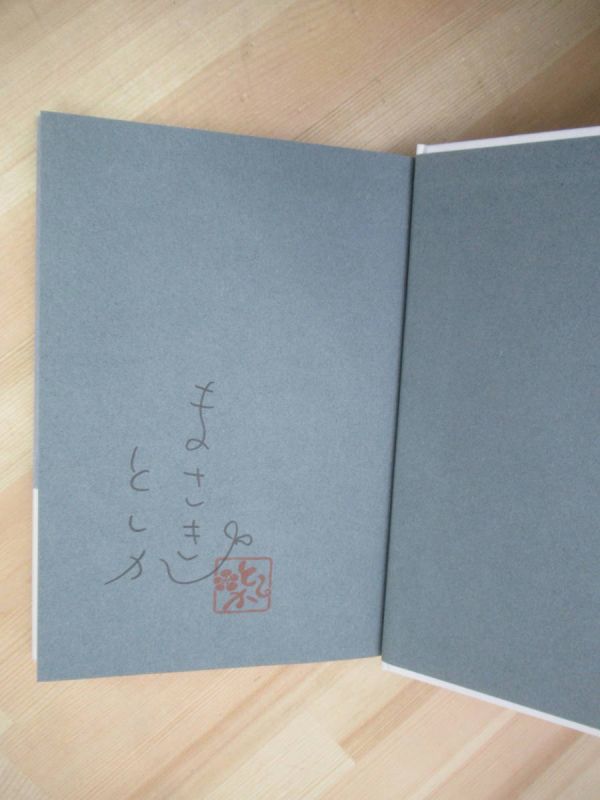 まさき
としか
としか